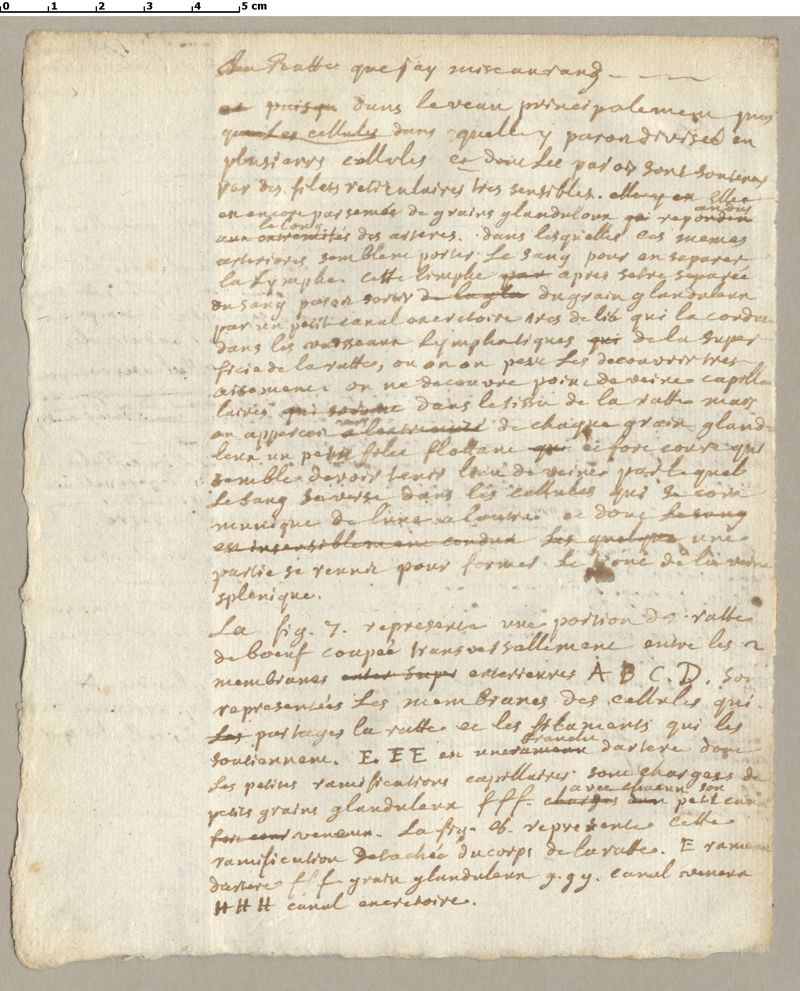 0 1 2 3 4 5 cm
La Ratte que j'ay mise au rang
et puisqu dans le veau principalement
que les cellules dans quelle y paron divisée en
plusieurs cellules et donc Les parois sont soutenues
par des filets reticulaires tres sensibles. elle en
en encore parsemée de grains glanduleux qui repondent
andus
le long
aux extremités des arteres. dans lesquelles ces memes
arterioles semblent porter Le Sang pour en separer
la Lymphe. Cette limphe par apres setre separée
du sang paron sortir de la gla du grain glanduleux
par un petit canal encretoire tres delié qui la conduit
dans les vaisseaux Lymphatiques qui de la super
ficie de la ratte, ou on en peut Les decouvrir tres
aisement. on ne decouvre point de veines capillai
laires qui dans le tissu de la ratte mais
on appercoit a lextremité de chaque grain gland
leux un petit filet flottant qui et fort court qui
semble devoir tenir lieu de veine par lequel
Le Sang se verse dans les cellules qui se com
munique de l'une a lautre et donc Le sang
est insensiblement conduit Les quelques une
partie se reunit pour former Le tronc de la veine
splenique.
La fig. 7. represente une portion de ratte
de boeuf coupée transversallement entre les 2
membranes exterieures A B C. D. son
representées Les membranes des cellules qui
Les partages la ratte et les filaments qui les
branche
soutiennent. E. E E en une rameau dartere dont
Les petites ramifications capillaires sont chargées de
avec chacun son
petits grains glanduleux fff. chargés dun petit canal
fort court veneux. La fig. 8. represente cette
ramification detachée du corps de la ratte. E rameau
dartere fff grain glanduleux g.gg. canal veneux
H H H canal encretoire.